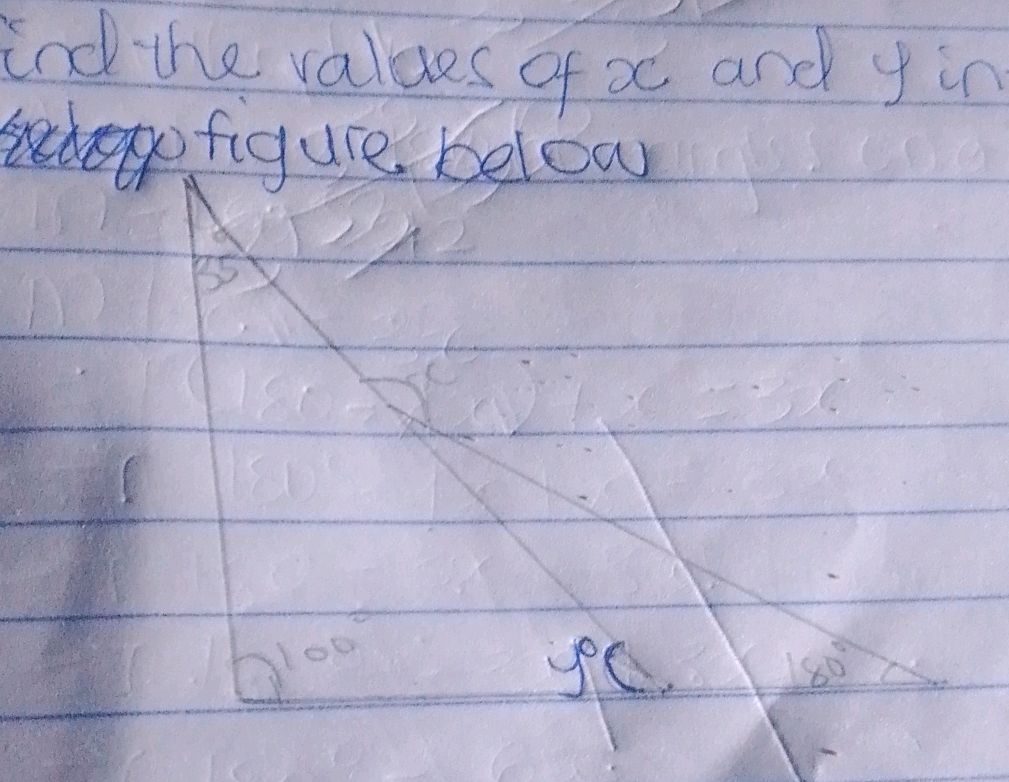 ind the values of x and y in
figure below
35
x
100°
y°
80°